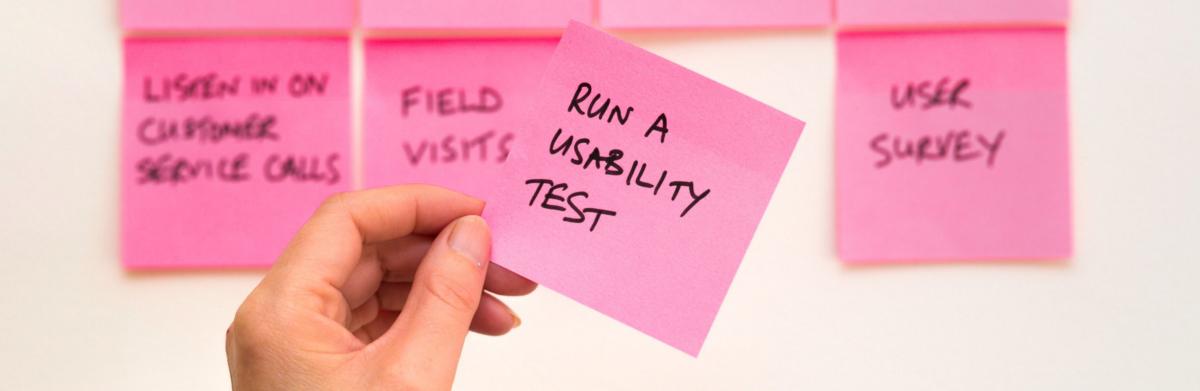 LISTEN IN ON
CUSTOMER
SERVICE CALLS
FIELD
VISITS
RUN A
USABILITY
TEST
USER
SURVEY